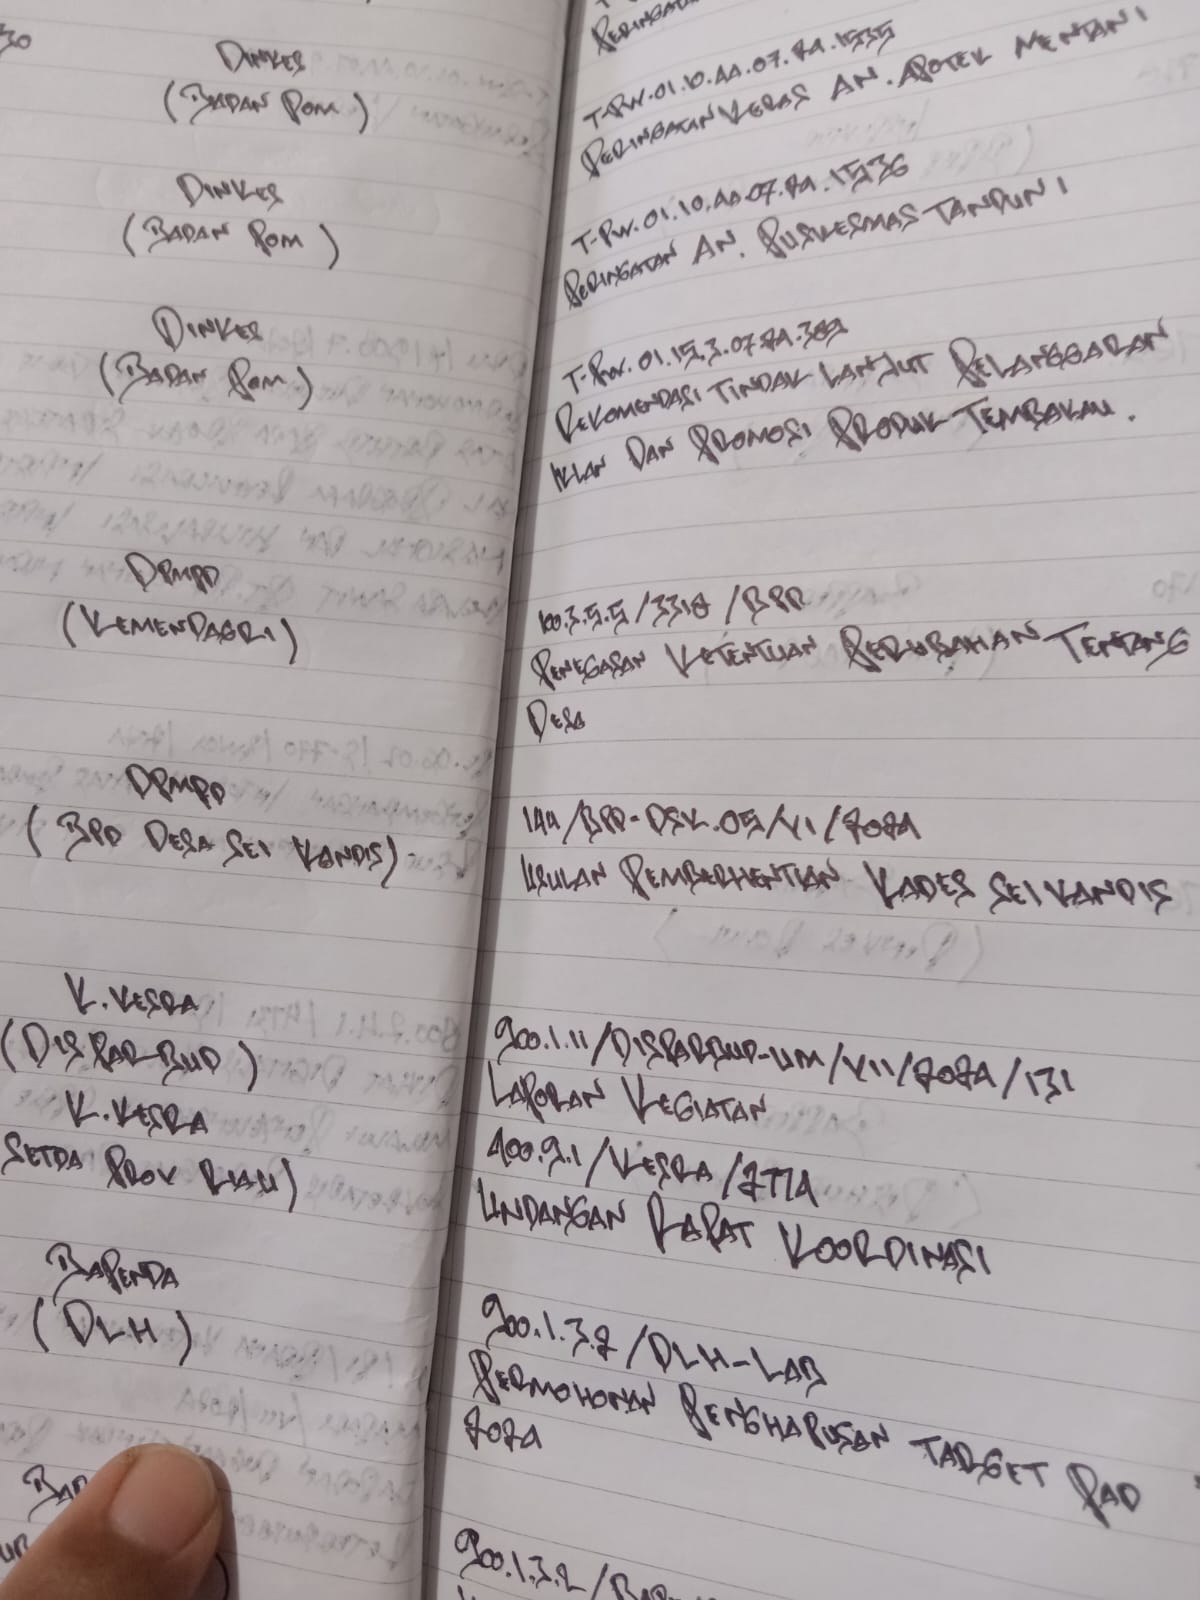 30
DINKES
(BADAN POM)
T-PW.01.10.4A.07.24.1535
PERINGATAN KERAS AN. APOTEK MENTANI
DINKES
(BADAN POM)
T-PW.01.10.4A.07.24.1536
PERINGATAN AN. PUSKESMAS TANDUN I
DINKES
(BADAN POM)
T-PW.01.15.3.07.24.389
REKOMENDASI TINDAK LANJUT PELANGGARAN
IKLAN DAN PROMOSI PRODUK TEMBAKAU.
DPMPD
(KEMENDAGRI)
100.3.5.5/3318/BPD
PENEGASAN KETENTUAN PERUBAHAN TENTANG
DESA
DPMPD
(BPD DESA SEI KANDIS)
144/BPD-DSK.05/VI/2024
USULAN PEMBERHENTIAN KADES SEI KANDIS
K.KESRA
(DISPARBUD)
900.1.11/DISPARBUD-UM/VII/2024/131
LAPORAN KEGIATAN
K.KESRA
SETDA PROV RIAU)
400.9.1/KESRA/2774
UNDANGAN RAPAT KOORDINASI
BAPENDA
(DLH)
900.1.3.2/DLH-LAB
PERMOHONAN PENGHAPUSAN TARGET PAD
2024
900.1.3.2/